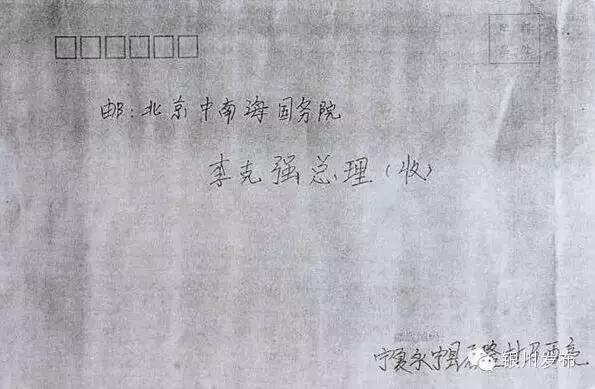 贴 邮
邮:北京中南海国务院
李克强总理(收)
宁夏永宁县
银川发布